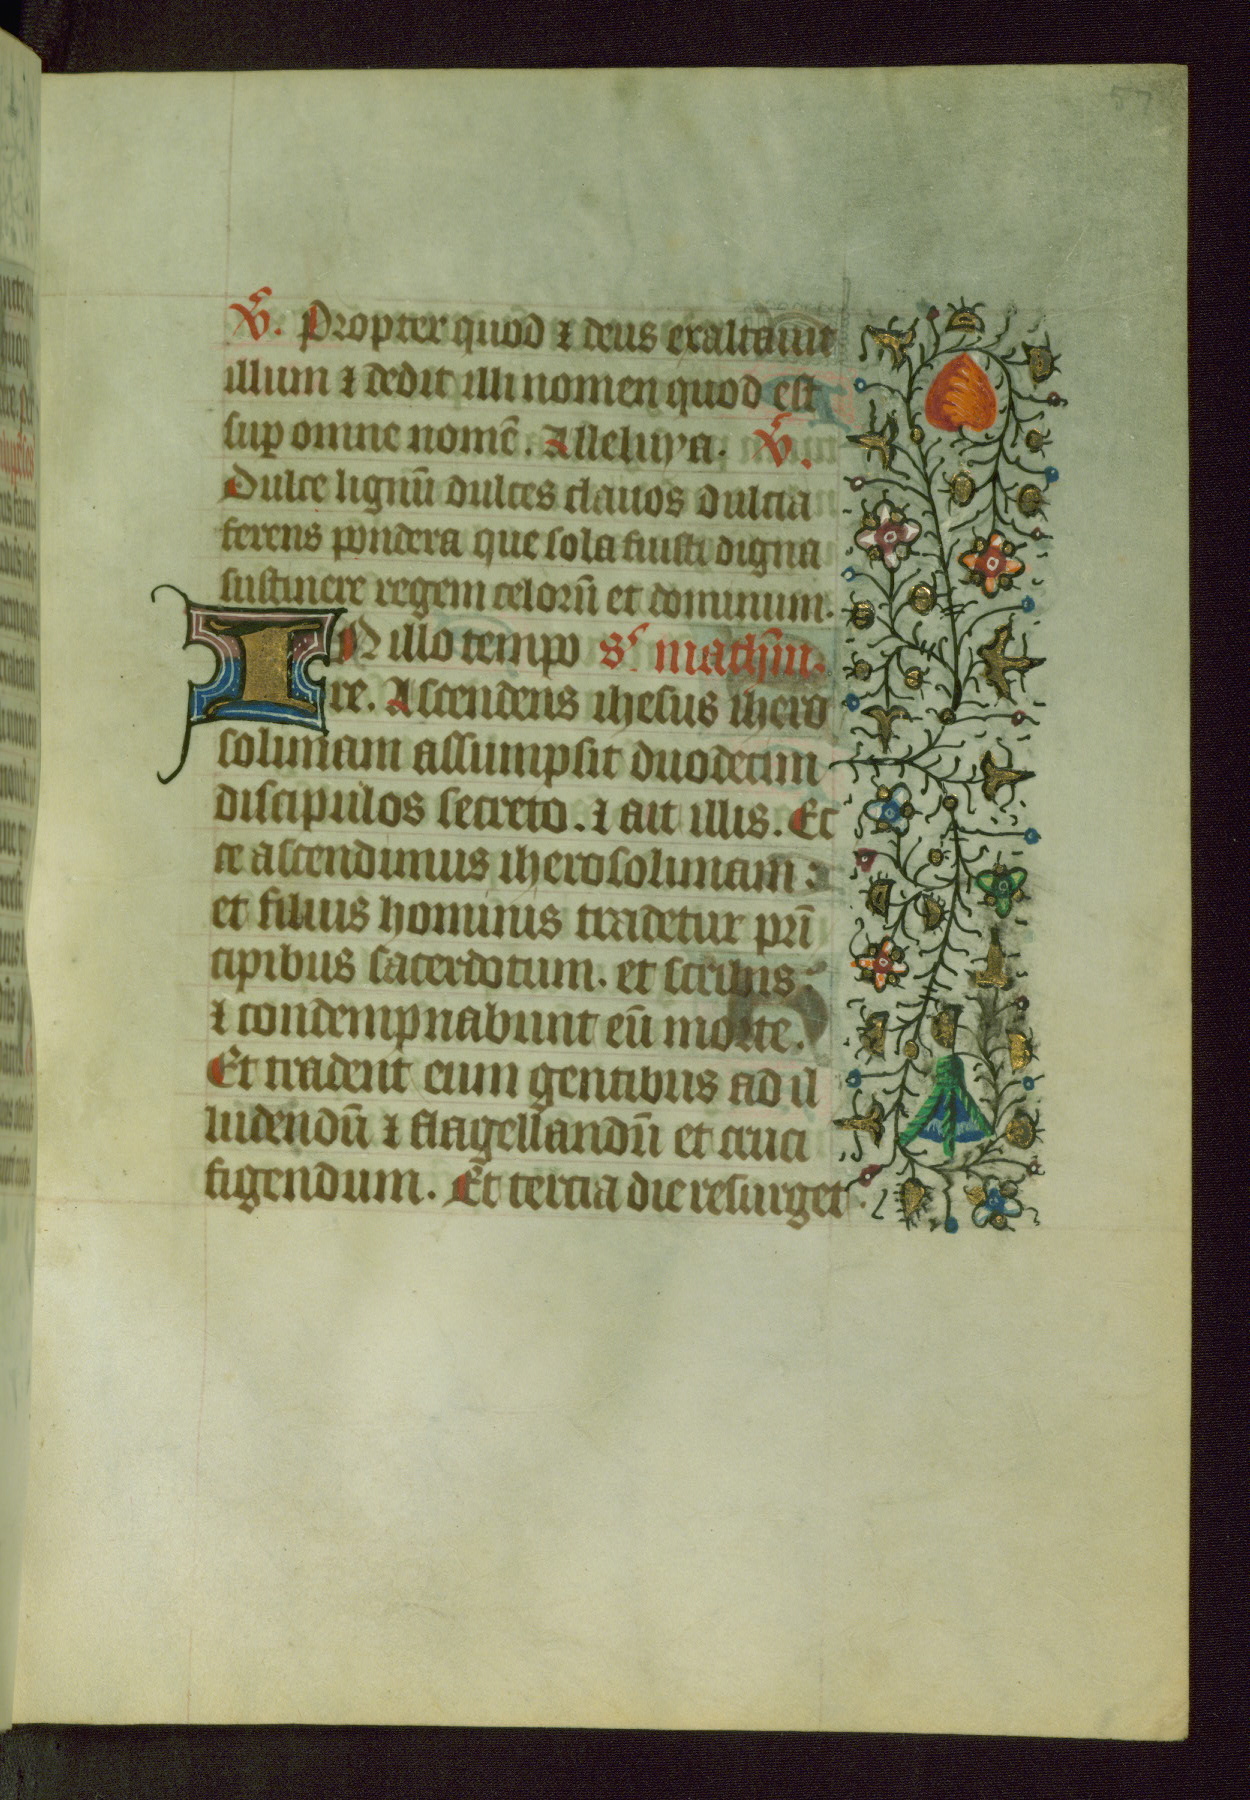 57
V̄. Propter quod ⁊ deus exaltauit
illum ⁊ dedit illi nomen quod est
sup omne nomē. Alleluya. V̄.
Dulce lignū dulces clauos dulcia
ferens pondera que sola fuisti digna
sustinere regem celorū et dominum.
IN illo tempo S. mathm̄.
re. Ascendens ihesus ihero
solimam assumpsit duodecim
discipulos secreto. ⁊ ait illis. Ec
ce ascendimus iherosolimam
et filius hominis tradetur pri̅
cipibus sacerdotum. et scribis
⁊ condempnabunt eū morte.
Et tradent eum gentibus ad il
ludendū ⁊ flagellandū et cruci
figendum. Et tercia die resurget.